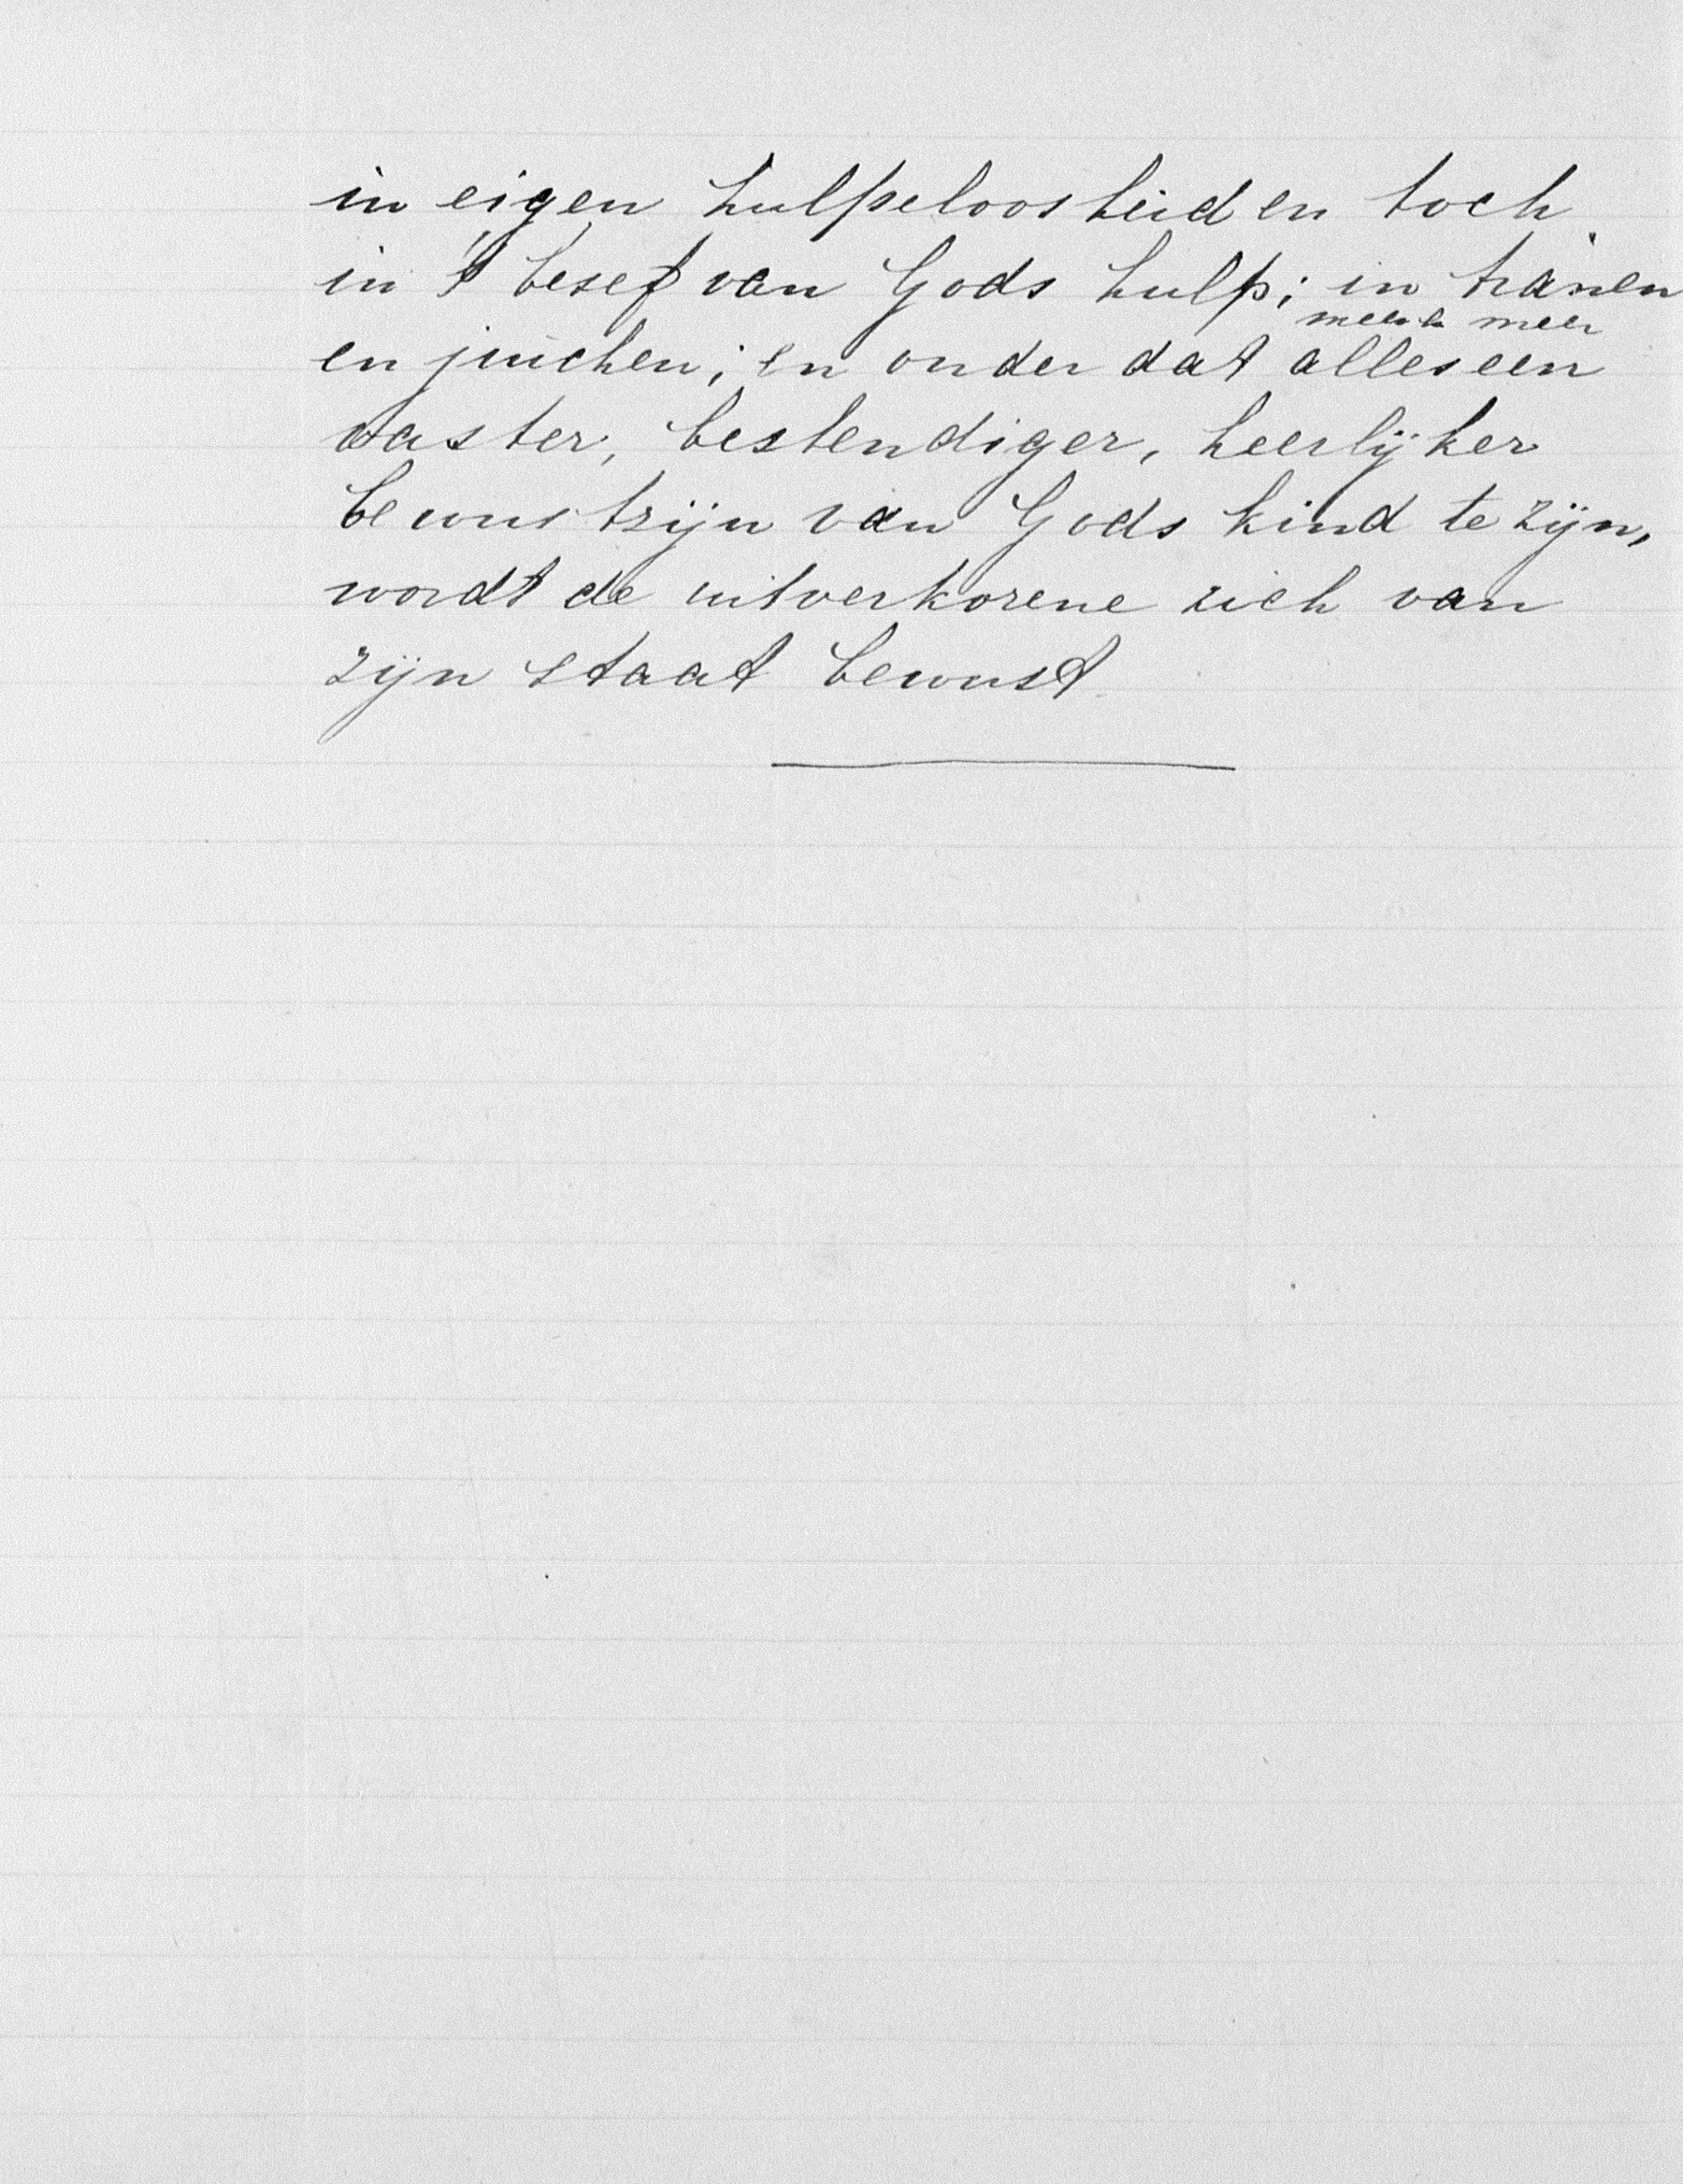 in eigen hulpeloosheid en toch
in 't besef van Gods hulp; in tranen
en juichen; en onder dat alles een
meer en meer
vaster, bestendiger, heerlijker
bewustzijn van Gods kind te zijn,
wordt de uitverkorene zich van
zijn staat bewust